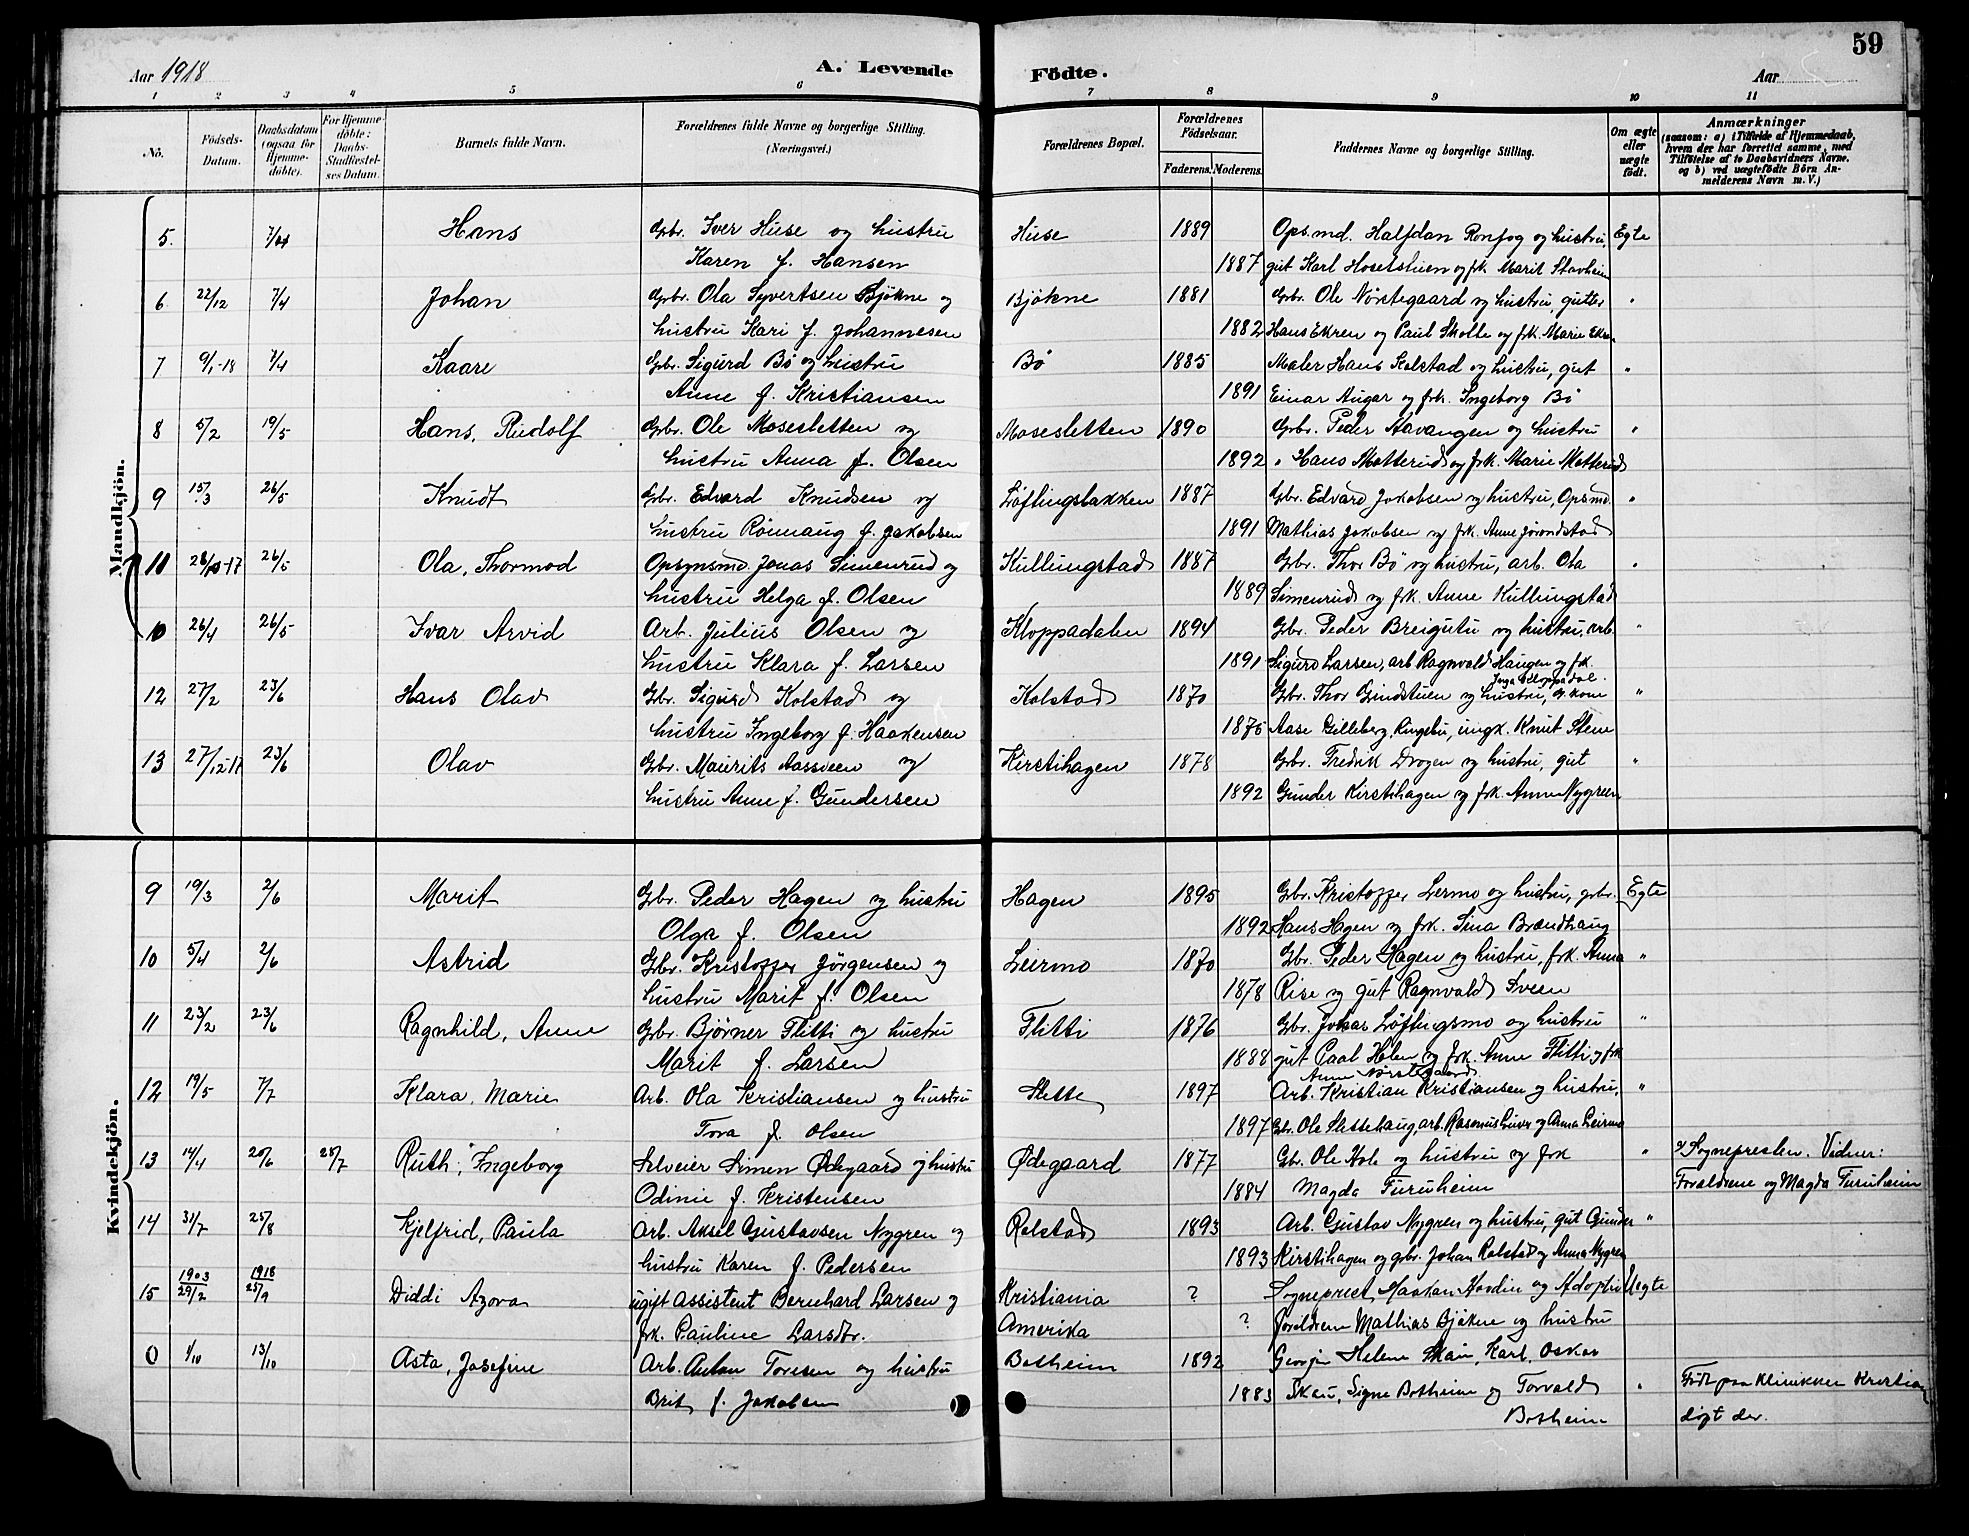 Aar 1918 A. Levende Födte. Aar 59
1 2 3 4 5 6 7 8 9 10 11
No. Födsels-Datum. Daabsdatum (ogsaa for Hjemmedöbte). For Hjemmedöbte: Daabs-Stadfæstelses Datum. Barnets fulde Navn. Forældrenes fulde Navne og borgerlige Stilling. (Næringsvei.) Forældrenes Bopæl. Forældrenes Födselsaar. Faderens. Moderens. Faddernes Navne og borgerlige Stilling. Om ægte eller uægte födt. Anmærkninger (saasom: a) i Tilfælde af Hjemmedaab, hvem der har forrettet samme, med Tilföielse af to Daabsvidners Navne. og b) ved uægtefödte Börn Anmelderens Navn m. V.)
Mandkjön.
5. 7/4 Hans Gbr. Iver Huse og hustru Huse 1889 Ops.md. Halfdan Ronfog og hustru, Egte
Karen f. Hansen 1887 gut Karl Hosetstuen og frk. Marit Stavheim
6 22/12 7/4 Johan Gbr. Ola Syvertsen Bjökne og Bjökne 1881 Gbr. Ole Nörstegaard og hustru, gutter "
hustru Kari f. Johannesen 1882 Hans Ekren og Paul Skotte og frk. Marie Ekre.
7 9/1-18 7/4 Kaare Gbr. Sigurd Bö og hustru Bö 1885 Maler Hans Kolstad og hustru, gut "
Anne f. Kristiansen 1891 Einar Augar og frk. Ingeborg Bö
8 5/2 19/5 Hans, Rudolf Gbr. Ole Mosesletten og Mosesletten 1890 Gbr. Peder Aavangen og hustru "
hustru Anna f. Olsen 1892 " Hans Motterud og frk. Marie Motterud
9 15/3 26/5 Knudt Gbr. Edvard Knudsen og Løftingsbakken 1887 Gbr. Edvard Jakobsen og hustru, Opsmd. "
hustru Rönnaug f. Jakobsen 1891 Mathias Jakobsen og frk. Anne Jorondstad
11 -17 26/5 Ola, Thormod Opsynsmd. Jonas Simenrud og Kullungstad 1887 Gbr. Thor Bö og hustru, arb. Ola "
hustru Helga f. Olsen 1889 Simenrud og frk. Anne Kullungstad
10 26/4 26/5 Ivar Arvid Arb. Julius Olsen og Kloppadalen 1894 Gbr. Peder Breigutu og hustru, arb. "
hustru Klara f. Larsen 1891 Sigurd Larsen, arb Ragnvald Haugen og frk.
Inga Kloppadal.
12 27/2 23/6 Hans Olav Gbr. Sigurd Kolstad og Kolstad 1870 Gbr. Thor Grindstuen og hustru, "
hustru Ingeborg f. Haakensen 1876 Aase Gilleberg, Ringebu, ungk. Knut Stene
13 27/12-17 23/6 Olav Gbr. Maurits Aassveen og Kirstihagen 1878 Gbr. Fredrik Drogen og hustru, gut "
hustru Anne f. Gundersen 1892 Gunder Kirstihagen og frk. Anna Nygreen
Kvindekjön.
9 19/3 2/6 Marit Gbr. Peder Hagen og hustru Hagen 1895 Gbr. Kristoffer Lermo og hustru, gbr. Egte
Olga f. Olsen 1892 Hans Hagen og frk. Sina Brændhaug
10 5/4 2/6 Astrid Gbr. Kristoffer Jörgensen og Leirmo 1870 Gbr. Peder Hagen og hustru, frk. Anna "
hustru Marit f. Olsen 1878 Rise og gut Ragnvald Sveen
11 23/2 23/6 Ragnhild, Anne Gbr. Björner Flitti og hustru Flitti 1876 Gbr. Johas Løftingsmo og hustru "
Marit f. Larsen 1888 gut Paal Holen og frk. Anne Flitti og frk
Anne Nörstegaard.
12 19/5 7/7 Klara, Marie Arb. Ola Kristiansen og hustru Slette 1897 Arb. Kristian Kristiansen og hustru, "
Tora f. Olsen 1897 Gbr. Ole Slettehaug, arb. Rasmus Liver og Anna Leirmo
13 14/4 20/6 28/7 Ruth, Ingeborg Selveier Simen Ødegaard og hustru Ødegaard 1877 Gbr. Ole Hole og hustru og frk " Sognepresten. Vidner:
Odinie f. Kristensen 1884 Magda Furuheim Forældrene og Magda Furuheim
14 31/7 25/8 Kjelfrid, Paula Arb. Aksel Gustavsen Nygren og Rolstad 1893 Arb. Gustav Nygren og hustru, gut Gunder "
hustru Karen f. Pedersen 1893 Kirstihagen og gbr. Johan Rolstad og Anna Nygren
15 1903 29/2 1918 25/9 Diddi Azora ugift Assistent Bernhard Larsen og Kristiania ? Sogneprest Haakan Hovdin og Adoptiv Uegte
frk. Pauline Larsdtr. Amerika ? foreldrene Mathias Bjökne og hustru
0 1/10 13/10 Asta, Josefine Arb. Anton Toresen og hustru Botheim 1892 Georgin Helene Skau, Karl, Oskar
Brit f. Jakobsen 1883 Skau, Signe Botheim og Torvald " Födt paa klinikken Kristian
Botheim döpt der.